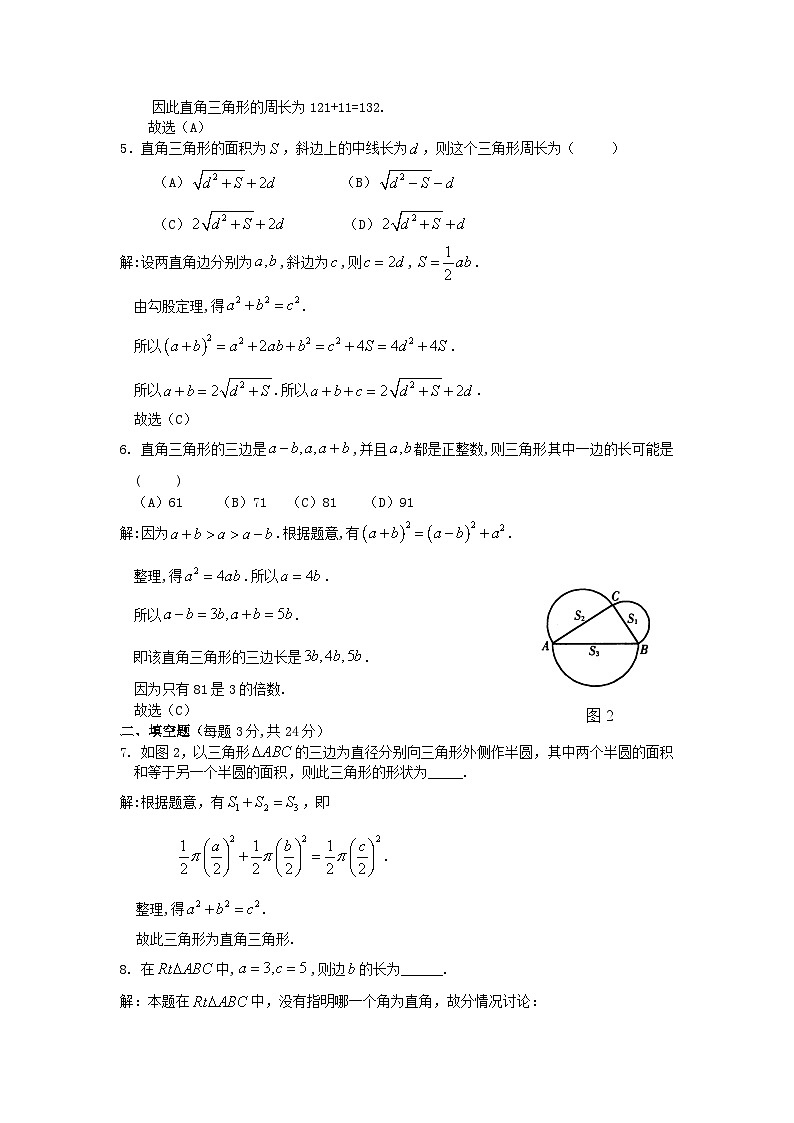 因此直角三角形的周长为 121+11=132.
故选(A)
5.直角三角形的面积为 S ,斜边上的中线长为 d ,则这个三角形周长为(  )
(A) √(d²+S)+2d  (B) √(d²−S)−d
(C) 2√(d²+S)+2d  (D) 2√(d²+S)+d
解:设两直角边分别为 a,b ,斜边为 c ,则 c=2d , S=1/2 ab .
由勾股定理,得 a²+b²=c².
所以 (a+b)²=a²+2ab+b²=c²+4S=4d²+4S .
所以 a+b=2√(d²+S) .所以 a+b+c=2√(d²+S)+2d .
故选(C)
6. 直角三角形的三边是 a−b,a,a+b ,并且 a,b 都是正整数,则三角形其中一边的长可能是
(  )
(A)61  (B)71  (C)81  (D)91
解:因为 a+b>a>a−b .根据题意,有 (a+b)²=(a−b)²+a².
整理,得 a²=4ab .所以 a=4b .
所以 a−b=3b,a+b=5b.
即该直角三角形的三边长是 3b,4b,5b.
因为只有 81 是 3 的倍数.
故选(C)
C
S₂
S₁
A
S₃
B
图 2
二、填空题(每题 3 分,共 24 分)
7. 如图 2, 以三角形 ΔABC 的三边为直径分别向三角形外侧作半圆, 其中两个半圆的面积
和等于另一个半圆的面积, 则此三角形的形状为_____.
解:根据题意, 有 S₁+S₂=S₃ , 即
1/2 π(a/2)²+1/2 π(b/2)²=1/2 π(c/2)².
整理,得 a²+b²=c².
故此三角形为直角三角形.
8. 在 RtΔABC 中, a=3,c=5 ,则边 b 的长为______.
解: 本题在 RtΔABC 中, 没有指明哪一个角为直角, 故分情况讨论: